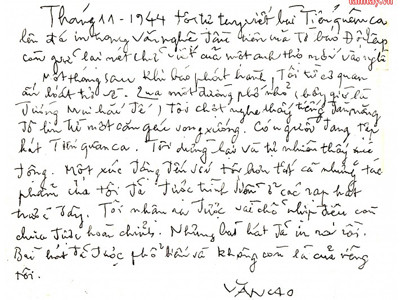 Tháng 11-1944 tôi tự tay viết bài Tiến quân ca
lên đá in trang văn nghệ đầu tiên của tờ báo Độc Lập
còn giữ lại nét chữ viết của một anh thợ mới vào nghề
Một tháng sau khi báo phát hành, Tôi từ cơ quan
ấn loát trở về. Qua một đường phố nhỏ (bây giờ là
đường Mai Hắc Đế), tôi chợt nghe thấy tiếng đàn măng
đô lin từ một căn gác vọng xuống. Có người đang tập
hát Tiến quân ca. Tôi dừng lại và tự nhiên thấy xúc
động. Một xúc động đến với tôi hơn tất cả những tác
phẩm của tôi đã được trình diễn ở các rạp hát
trước đây. Tôi nhận ra được vài chỗ nhịp điệu còn
chưa được hoàn chỉnh. Nhưng bài hát đã in ra rồi.
Bài hát đã được phổ biến và không còn là của riêng
tôi.
VĂN CAO